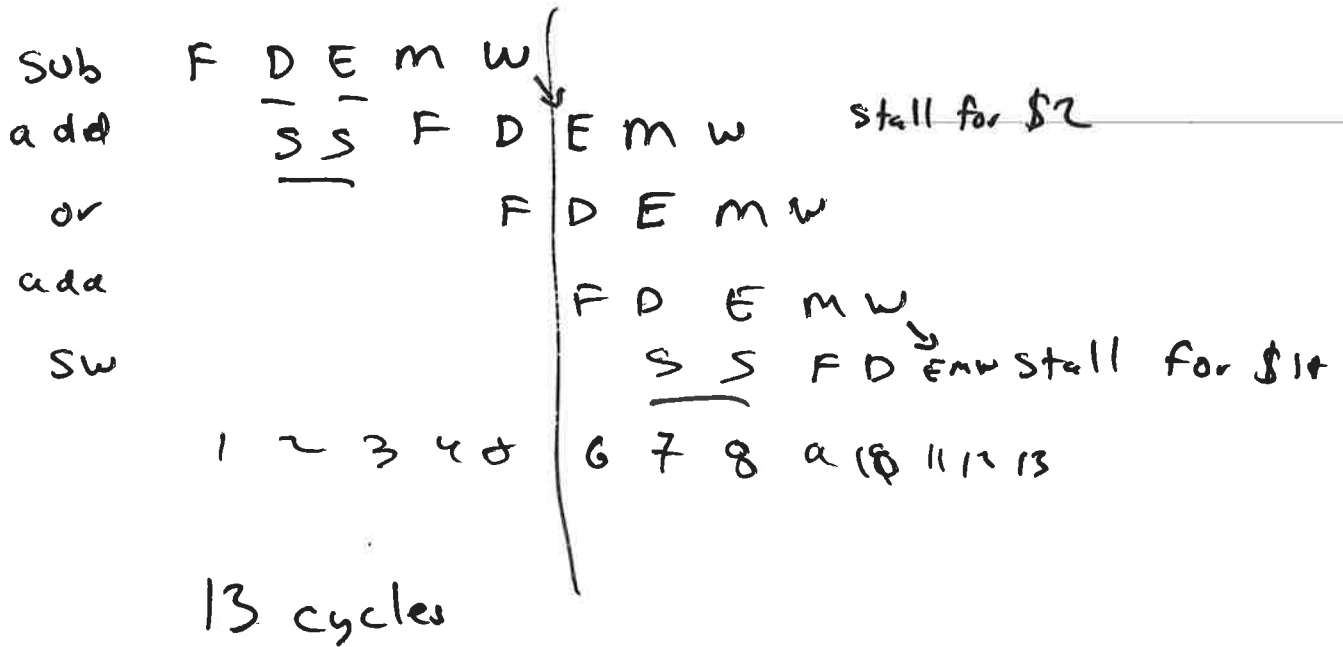 Sub F D E M W
add S S F D E M W stall for $2
or F D E M W
add F D E M W
SW S S F D E M W stall for $14
1 2 3 4 5 6 7 8 9 10 11 12 13
13 cycles